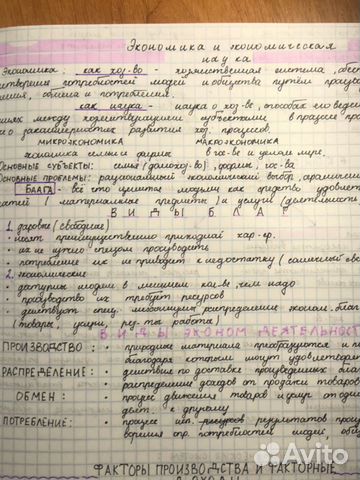 Экономика и экономическая
наука
Экономика: как хоз-во - хозяйственная система, обесп
потребностей людей и общества путём произв
обмена и потребления.
как наука - наука о хоз-ве, способах его веде
между хозяйствующими субъектами в процессе про
о закономерностях развития хоз. процессов.
МИКРОЭКОНОМИКА МАКРОЭКОНОМИКА
экономика семьи и фирмы в гос-ве и целом мире.
Основные субъекты: семья (домохоз-во), фирмы, гос-ва
Основные проблемы: рациональный экономический выбор, ограничен
БЛАГА - всё что ценится людьми как средство удовлетв
(материальные предметы) и услуги (деятельность,
ВИДЫ БЛАГ
1. даровые (свободные)
носят преимущественно природный хар-ер.
их не нужно людям производить
потребление их не приводит к недостатку (солнечный све
2. экономические
доступны людям в меньшем кол-ве, чем надо
производство их требует ресурсов
(товары, услуги, рез-ты работы)
ВИДЫ ЭКОНОМ ДЕЯТЕЛЬНОСТ
ПРОИЗВОДСТВО: природные материалы преобразуются и п
благодаря которым могут удовлетворя
РАСПРЕДЕЛЕНИЕ: действие по доставке произведённых благ
распределение доходов от продажи товаров
ОБМЕН: процесс движения товаров и услуг от одног
к другому
ПОТРЕБЛЕНИЕ: процесс исп. результатов процес
опр. потребностей людей, общ
ФАКТОРЫ ПРОИЗВОДСТВА И ФАКТОРНЫЕ
ДОХОДЫ
Avito